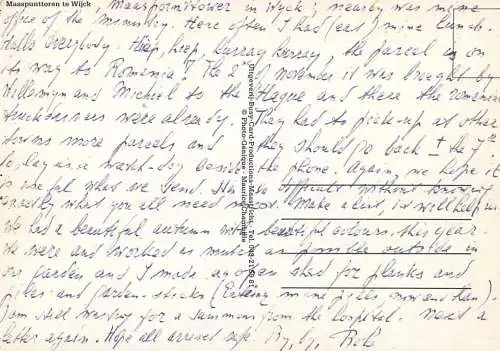 Maaspunttoren te Wijck
Maaspointtower in Wyck; nearby was mine
office of the ministry. Here often I had (eat) mine lunch.
Hallo everybody. Hiep, hiep, hurray hurray, the parcel is on
its way to Romania! The 2e of november it was brought by
Willemijn and Michiel to the Hague and there the romanian
truckdrivers were already. They had to pick-up at other
towns more parcels and they should go back ± the 7th
to day is a watch-day beside the phone. Again we hope it
is useful what we send. It is difficult without knowing
exactly what you all need most. Make a list, it will help us.
We had a beautiful autumn with beautiful colours this year.
We were and worked as much as possible outside in
our garden and I made a open shed for planks and
poles and garden-sticks (Entering mine girls now and than).
I am still waiting for a summons from the hospital. Need a
letter again. Hope all arrived safe. By, by,
Uitgeverij Busy-Card-Productions Maastricht, Tel.
© Photo-Génique Maurice